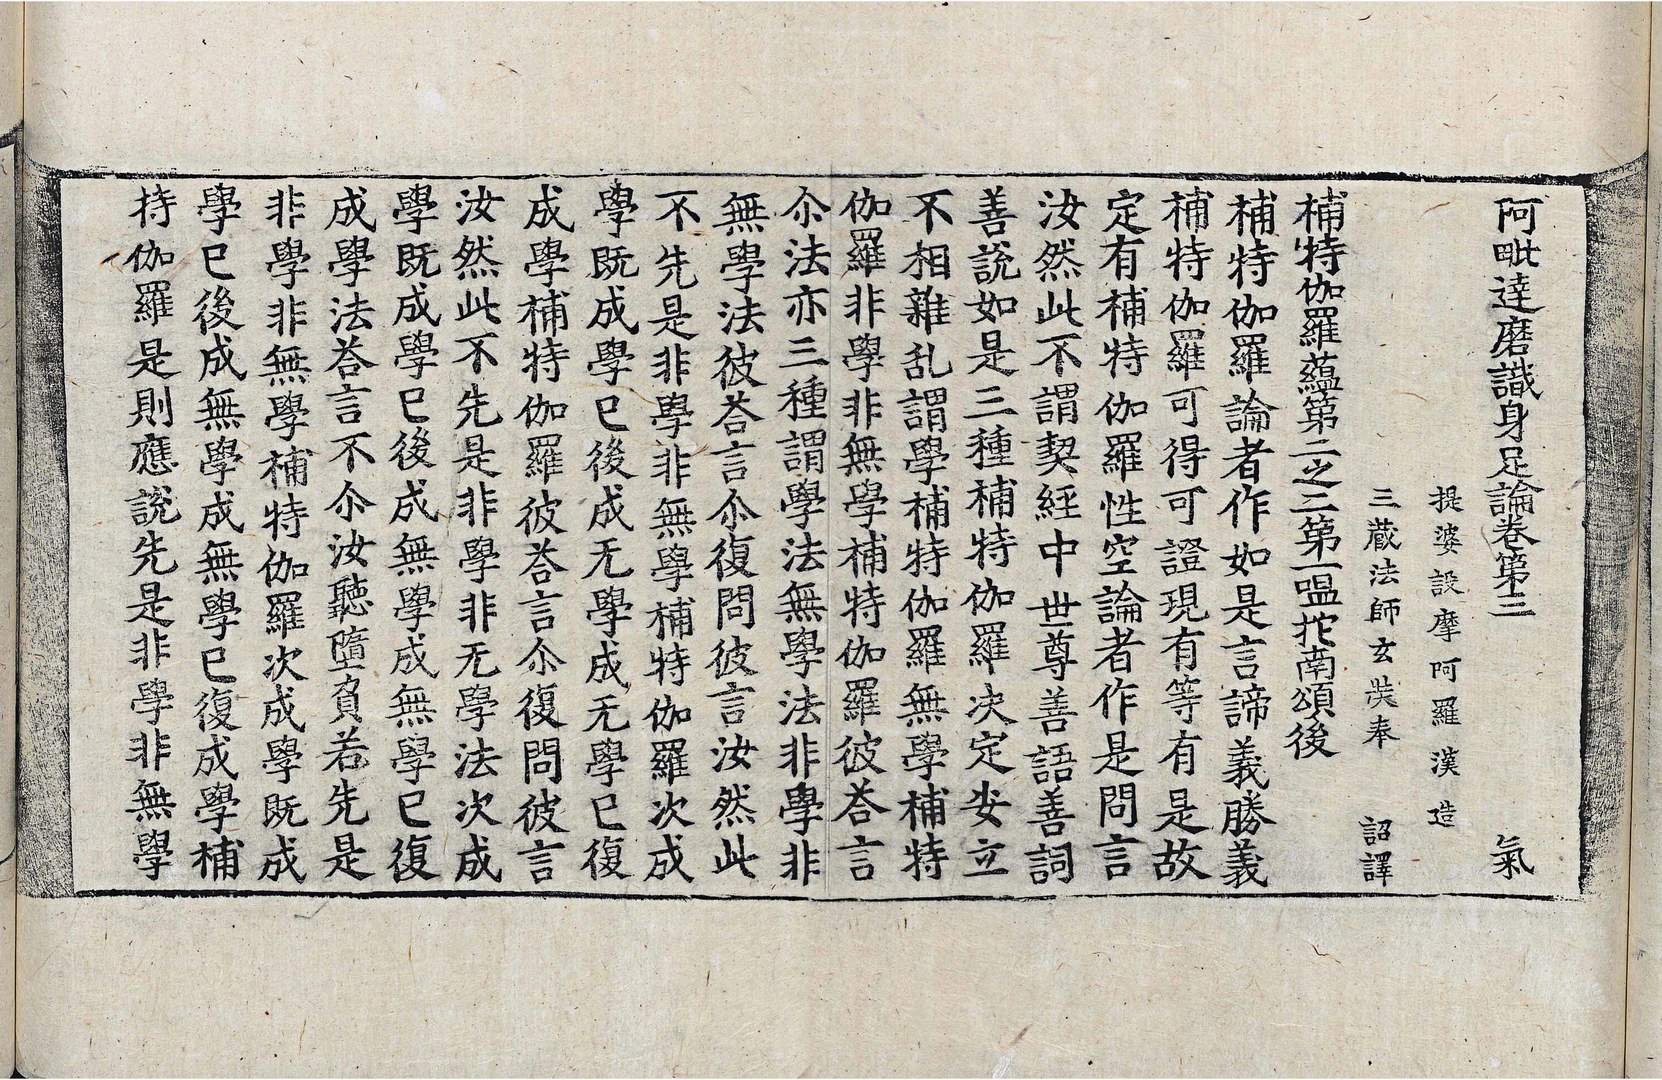 阿毗達磨識身足論卷第三 氣
提婆設摩阿羅漢 造
三藏法師玄奘奉 詔譯
補特伽羅蘊第二之二第一嗢拕南頌後
補特伽羅論者作如是言諦義勝義
補特伽羅可得可證現有等有是故
定有補特伽羅性空論者作是問言
汝然此不謂契經中世尊善語善詞
善說如是三種補特伽羅决定安立
不相雜乱謂學補特伽羅無學補特
伽羅非學非無學補特伽羅彼荅言
尒法亦三種謂學法無學法非學非
無學法彼荅言尒復問彼言汝然此
不先是非學非無學補特伽羅次成
學既成學已後成无學成无學已復
成學補特伽羅彼荅言尒復問彼言
汝然此不先是非學非无學法次成
學既成學已後成無學成無學已復
成學法荅言不尒汝聽墮負若先是
非學非無學補特伽羅次成學既成
學已後成無學成無學已復成學補
特伽羅是則應說先是非學非無學